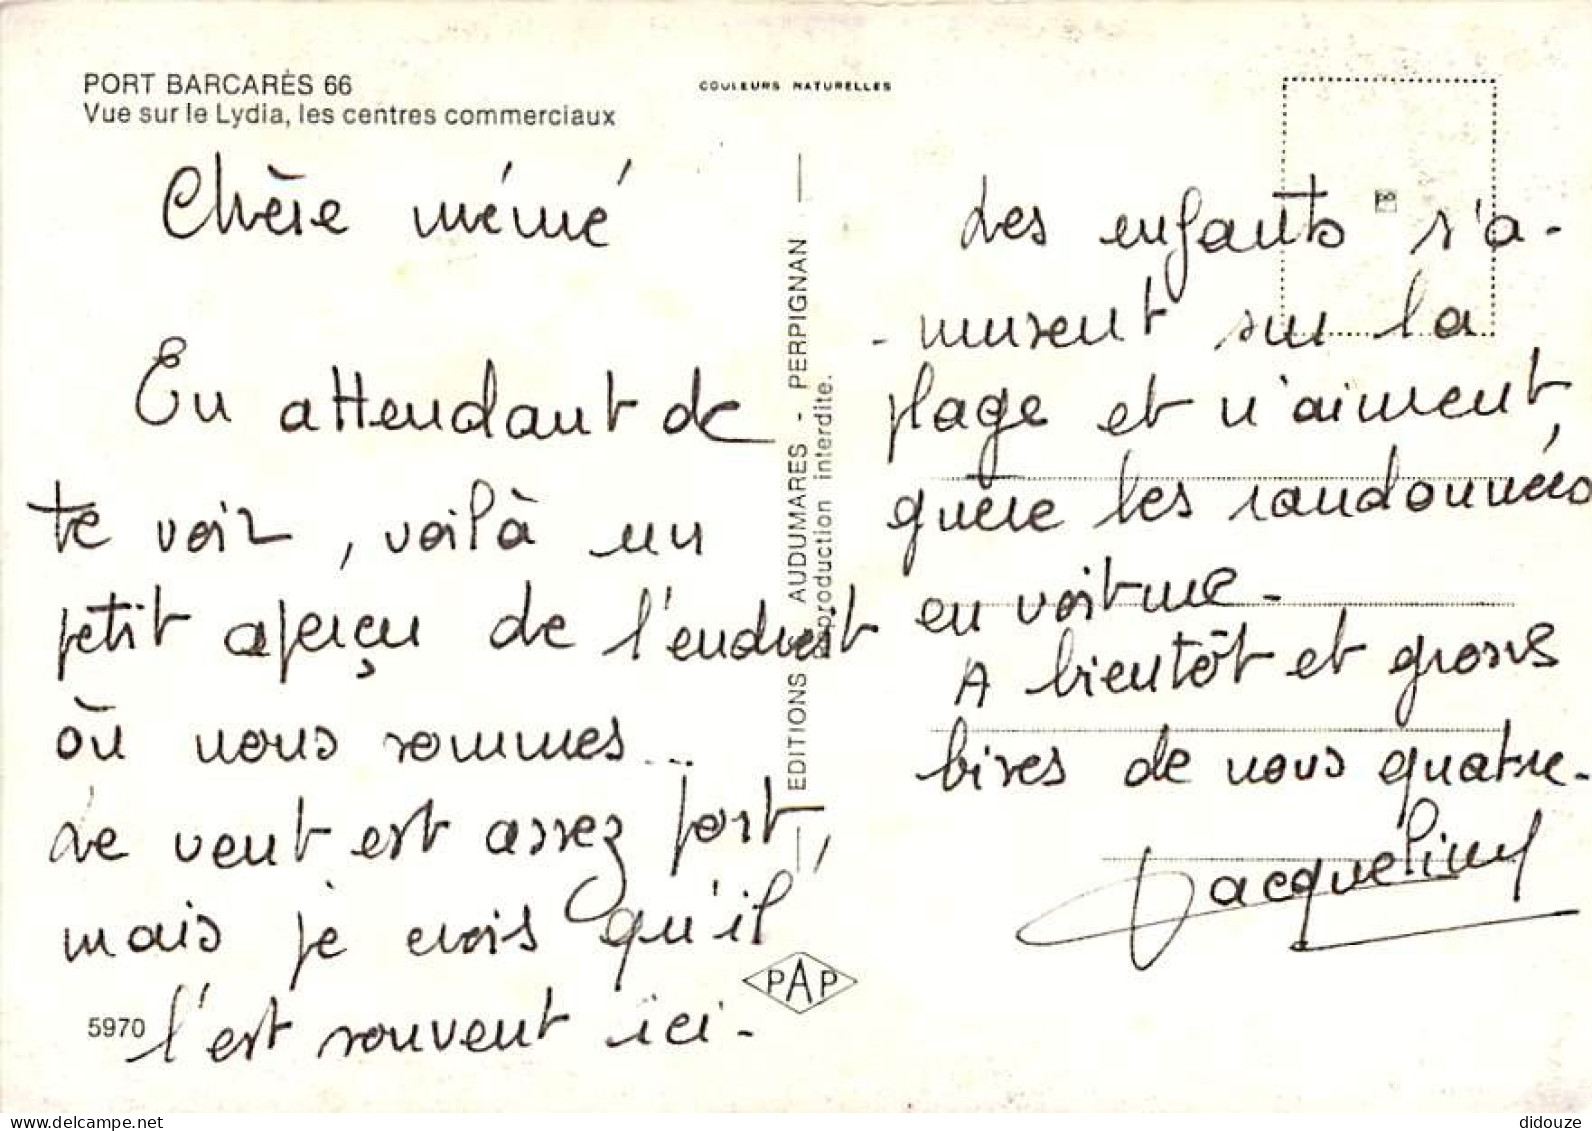 PORT BARCARÈS 66
Vue sur le Lydia, les centres commerciaux
COULEURS NATURELLES
Chère mémé
En attendant de
te voir, voilà un
petit aperçu de l'endroit
où nous sommes...
Le vent est assez fort,
mais je crois qu'il
l'est souvent ici.
5970
EDITIONS AUDUMARES - PERPIGNAN
Reproduction interdite.
PAP
Les enfants s'a-
-musent sur la
plage et n'aiment
guère les randonnées
en voiture.
A bientôt et grosses
bises de nous quatre.
Jacqueline
delcampe.net
didouze